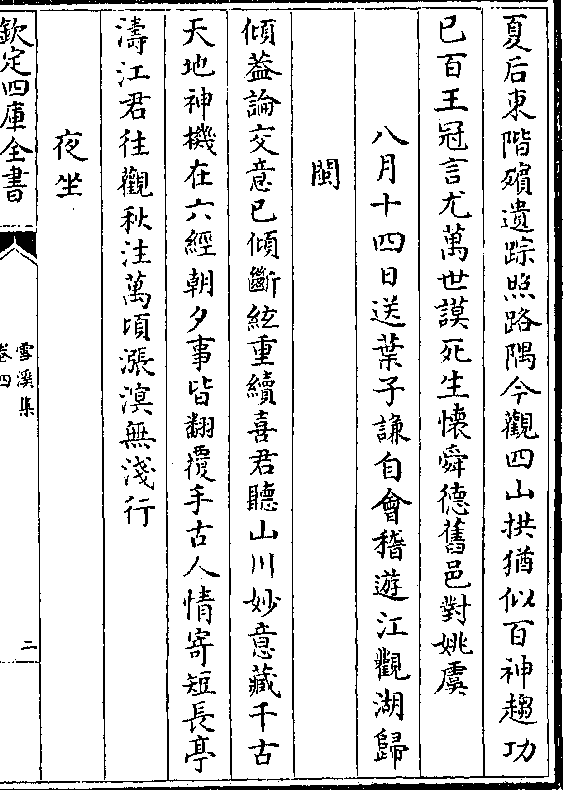 夏后東階殯遺踪照路隅今觀四山拱猶似百神趨功
已百王冠言尤萬世謨死生懷舜德舊邑對姚虞
八月十四日送葉子謙自會稽遊江觀湖歸
閩
傾葢論交意已傾斷絃重續喜君聽山川妙意藏千古
天地神機在六經朝夕事皆翻覆手古人情寄短長亭
濤江君往觀秋注萬頃漲溟無淺行
夜坐
欽定四庫全書
雪溪集
卷四
二